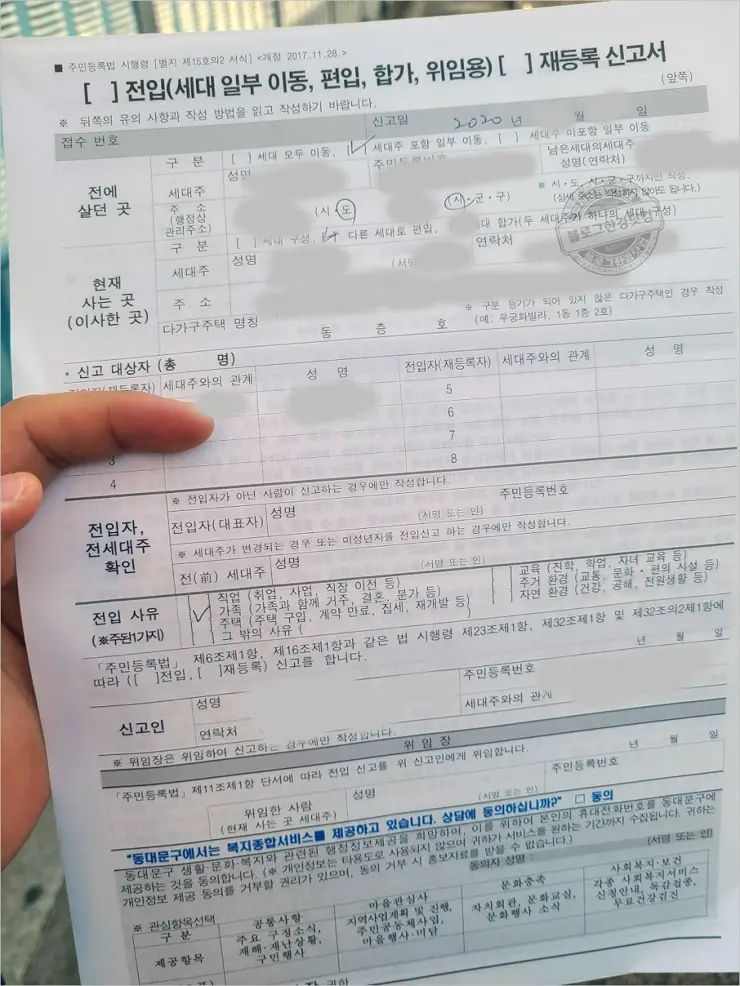 ■ 주민등록법 시행령 [별지 제15호의2 서식] <개정 2017.11.28.>
[ ] 전입(세대 일부 이동, 편입, 합가, 위임용) [ ] 재등록 신고서
(앞쪽)
※ 뒤쪽의 유의 사항과 작성 방법을 읽고 작성하기 바랍니다.
접수 번호 신고일 2020 년 월 일
전에 살던 곳
구 분 [ ] 세대 모두 이동, [✓] 세대주 포함 일부 이동, [ ] 세대주 미포함 일부 이동
세대주 성명 주민등록번호 남은세대의세대주 성명(연락처)
주 소 (행정상 관리주소) (시·도) (시·군·구) ※ 시·도, 시·군·구까지만 작성.
(상세 주소는 작성하지 않아도 됩니다.)
현재 사는 곳 (이사한 곳)
구 분 [ ] 세대 구성, [✓] 다른 세대로 편입, 대 합가(두 세대주가 하나의 세대 구성)
블로그한경닷컴
블로그한경닷컴
세대주 성명 (서명 연락처
주 소
※ 구분 등기가 되어 있지 않은 다가구주택인 경우 작성
다가구주택 명칭 동 층 호 (예: 무궁화빌라, 1동 1층 2호)
* 신고 대상자 (총 명)
전입자(재등록자) 세대주와의 관계 성 명 전입자(재등록자) 세대주와의 관계 성 명
5
6
7
3 8
4
전입자, 전세대주 확인
※ 전입자가 아닌 사람이 신고하는 경우에만 작성합니다.
전입자(대표자) 성명 (서명 또는 인) 주민등록번호
※ 세대주가 변경되는 경우 또는 미성년자를 전입신고 하는 경우에만 작성합니다.
전(前) 세대주 성명 (서명 또는 인)
전입 사유 (※주된1가지)
직업 (취업, 사업, 직장 이전 등) 교육 (진학, 학업, 자녀 교육 등)
✓ 가족 (가족과 함께 거주, 결혼, 분가 등) 주거 환경 (교통, 문화·편의 시설 등)
주택 (주택 구입, 계약 만료, 집세, 재개발 등) 자연 환경 (건강, 공해, 전원생활 등)
그 밖의 사유 (
「주민등록법」 제6조제1항, 제16조제1항과 같은 법 시행령 제23조제1항, 제32조제1항 및 제32조의2제1항에
따라 ([ ]전입, [ ]재등록) 신고를 합니다.
년 월 일
신고인
성명 주민등록번호
연락처 세대주와의 관계
※ 위임장은 위임하여 신고하는 경우에만 작성합니다.
위 임 장
「주민등록법」 제11조제1항 단서에 따라 전입 신고를 위 신고인에게 위임합니다.
년 월 일
위임한 사람 (현재 사는 곳 세대주) 성명 (서명 또는 인) 주민등록번호
"동대문구에서는 복지종합서비스를 제공하고 있습니다. 상담에 동의하십니까?" □ 동의
동대문구 생활·문화·복지와 관련된 행정정보제공을 희망하며, 이를 위하여 본인의 휴대전화번호를 동대문구에
제공하는 것을 동의합니다. (※ 개인정보는 타용도로 사용되지 않으며 귀하가 서비스를 원하는 기간까지 수집됩니다. 귀하는
개인정보 제공 동의를 거부할 권리가 있으며, 동의 거부 시 홍보자료를 받을 수 없습니다.)
동의자 성명 : (서명 또는 인)
※ 관심항목선택
구 분 공통사항 마을관심사 문화충족 사회복지·보건
제공항목 주요 구정소식, 재해·재난상황, 구민행사 지역사업계획 및 진행, 주민공동체사업, 마을행사·미담 자치회관, 문화교실, 문화행사 소식 각종 사회복지서비스 신청안내, 독감접종, 무료건강검진
귀하